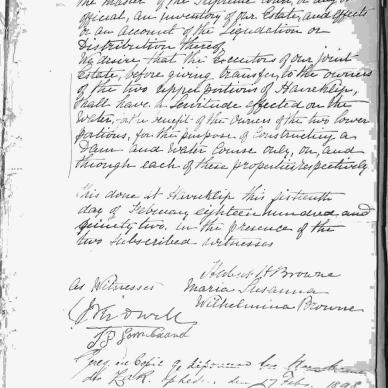 the Master of the Supreme Court, or any
official, an inventory of our Estate, and effects
or an account of the Liquidation or
Distribution thereof
My desire, that the Executors of our joint
Estate, before giving transfer, to the owners
of the two upper portions of Haveklip,
shall have a Servitude affected on the
Water, benefit of the owners of the two lower
portions, for the purpose of Constructing a
Dam and Water Course only, on, and
through each of these properties respectively
Thus done at this fifteenth
day of February eighteen hundred and
ninety two, in the presence of the
two Subscribed witnesses
Browne
As Witnesses Maria Susanna
Wilhelmina Browne
den 27 Feb. 1898